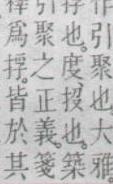 作引聚也。大雅
捊也。度投也。築
引聚之正義。箋
爲捊。皆於其